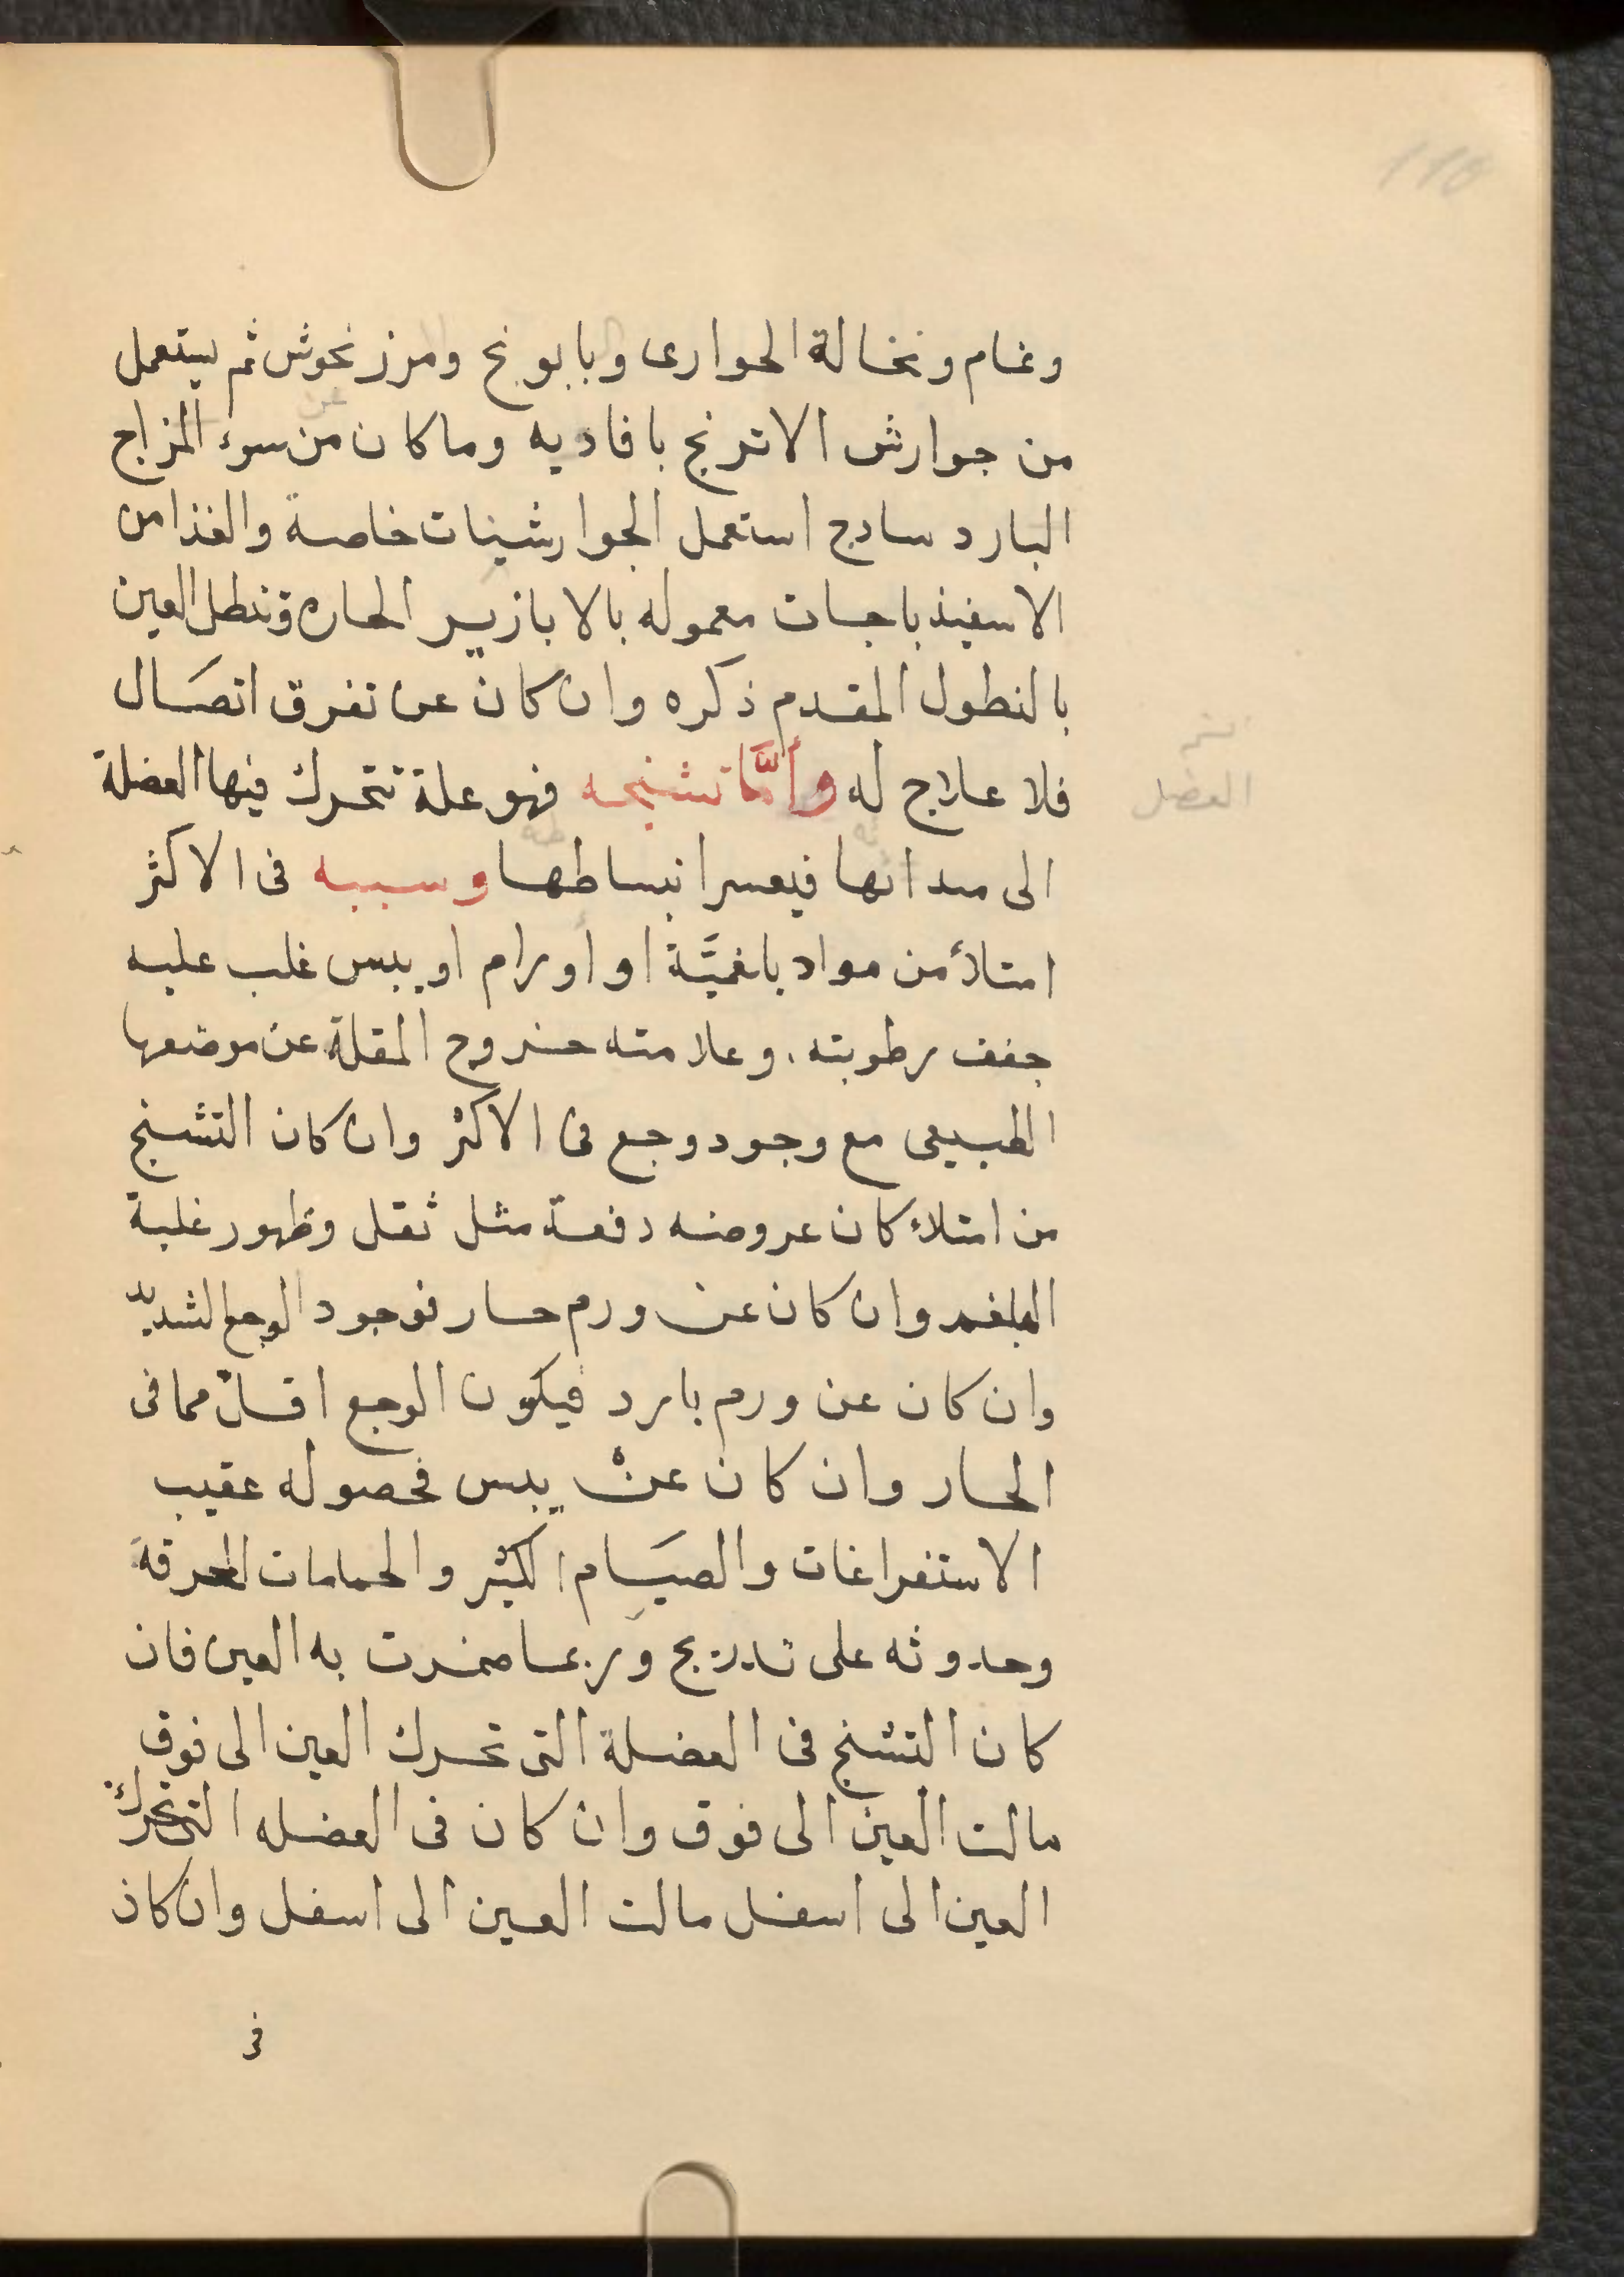 ونمام ونخالة الحوارى وبابونج ومرزنجوش ثم يستعمل
من جوارش الاترنج بافاديه وما كان من سوء المزاج
البارد سادج استعمل الجوارشينات خاصة والغذا من
الاسفيذباجات معموله بالابازير الحاره وتنطل العين
بالنطول المقدم ذكره وان كان عن تفرق اتصال
فلا علاج له وأمَّا تشنجه فهو علة تتحرك فيها العضلة
العضل
الى مبدائها فيعسر انبساطها وسببه فى الاكثر
امتلأ من مواد بلغميَّة او اورام او يبس غلب عليه
جفف رطوبته. وعلامته خروج المقلة عن موضعها
الطبيعى مع وجود وجع فى الاكثر وان كان التشنج
من امتلاء كان عروضه دفعة مثل ثقل وظهور غلبة
البلغم وان كان عن ورم حار فوجود الوجع الشديد
وان كان عن ورم بارد فيكون الوجع اقل مما فى
الحار وان كان عن يبس فحصوله عقيب
الاستفراغات والصيام الكثير والحمامات المحرقة
وحدوثه على تدريج وربما ضمرت به العين فان
كان التشنج فى العضلة التى تحرك العين الى فوق
مالت العين الى فوق وان كان فى العضله التى تحرك
العين الى اسفل مالت العين الى اسفل وان كان
فى